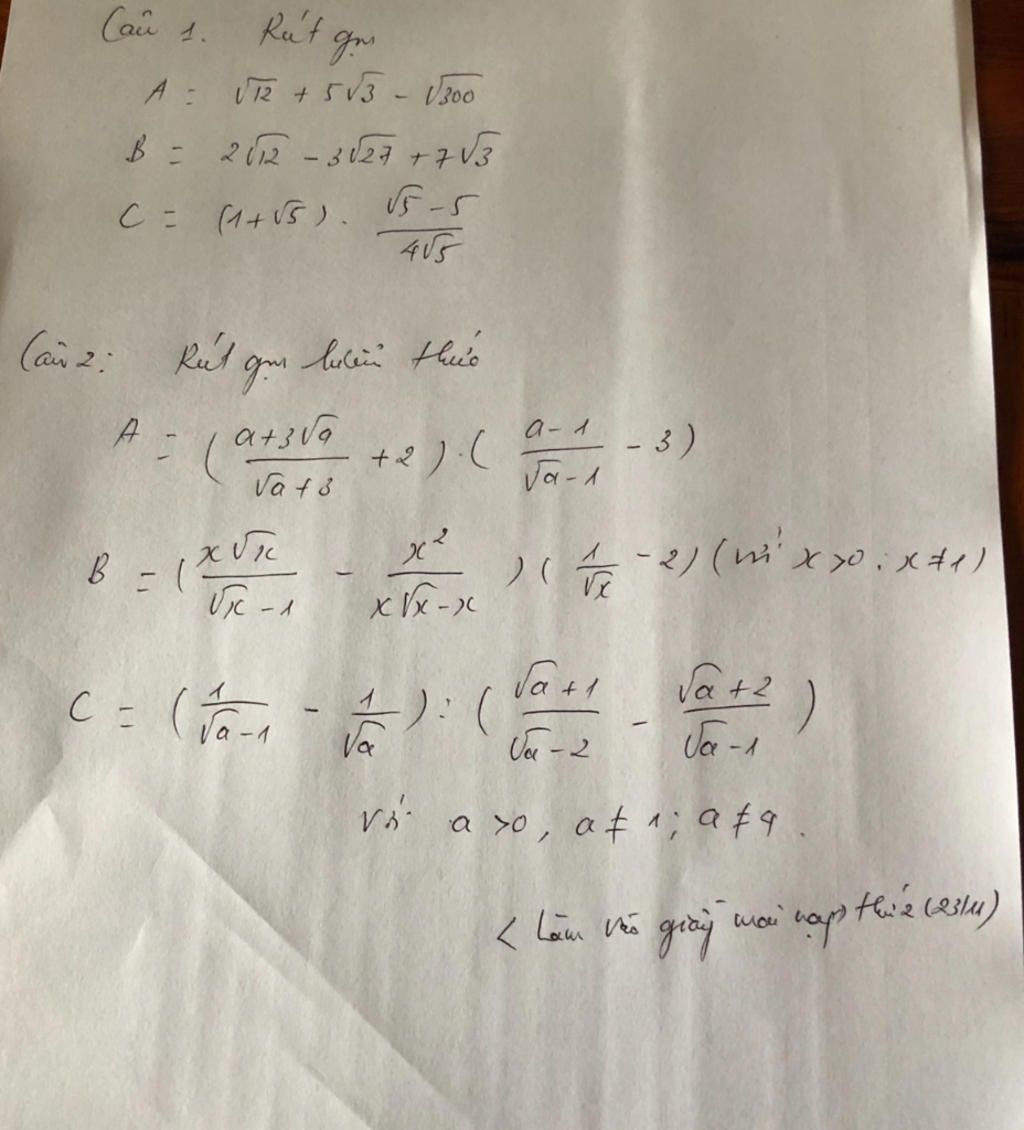 Câu 1. Rút gọn
A = √12 + 5√3 - √300
B = 2√12 - 3√27 + 7√3
C = (1+√5) . (√5 - 5)/(4√5)
Câu 2: Rút gọn biểu thức
A = ( (a+3√a)/(√a+3) + 2 ) . ( (a-1)/(√a-1) - 3 )
B = ( (x√x)/(√x-1) - x²/(x√x-x) ) ( 1/√x - 2 ) (với x>0 ; x≠1)
C = ( 1/(√a-1) - 1/√a ) : ( (√a+1)/(√a-2) - (√a+2)/(√a-1) )
với a>0, a≠1; a≠4.
< Làm vào giấy mai nạp thứ 2 (23/11)